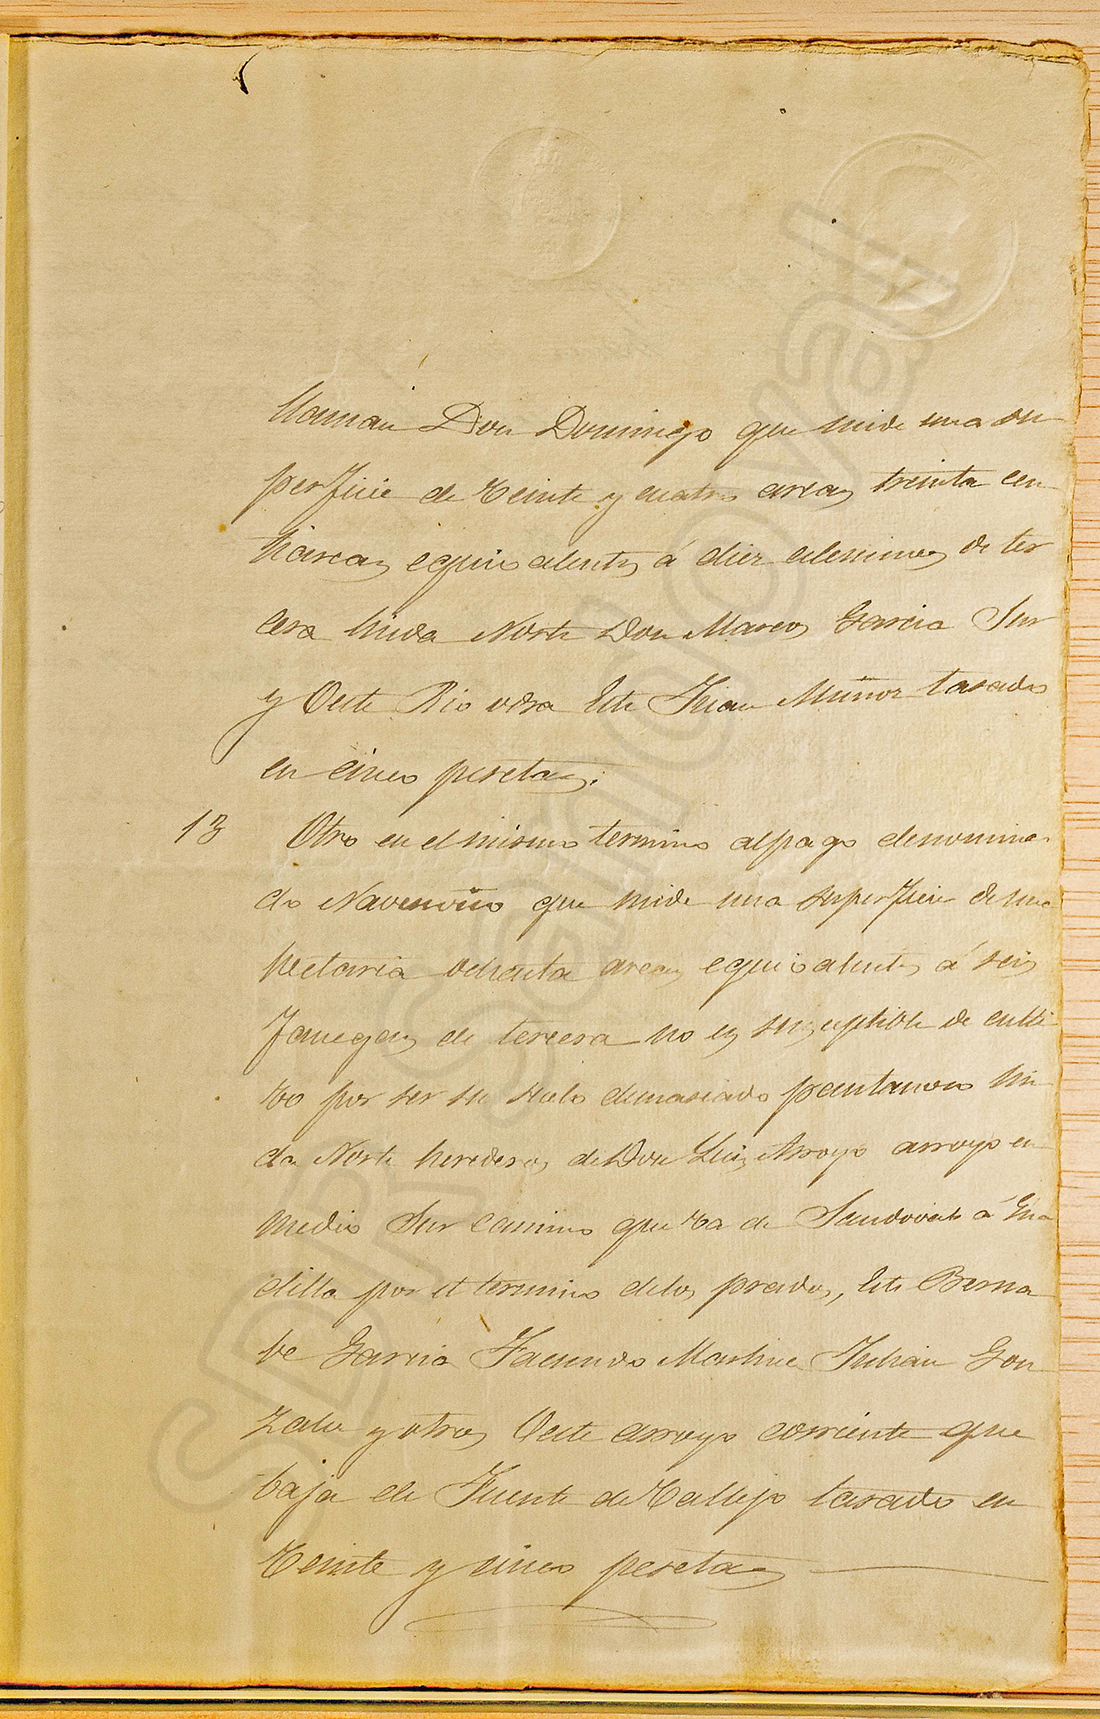 llaman Don Domingo que mide una su
perficie de veinte y cuatro areas treinta cen
tiareas equivalentes á diez celemines de ter
cera linda Norte Don Marcos Garcia Sur
y Oeste Rio odra Este Juan Muñoz tasado
en cinco pesetas.
13 Otro en el mismo termino al pago denomina
do que mide una superficie de una
hectaria ochenta areas equivalentes á seis
fanegas de tercera no es suceptible de culti
vo por ser su suelo demasiado pantanoso lin
da Norte herederos de Don Luis Arroyo arroyo en
medio Sur camino que va de Sandoval á Gua
dilla por el termino de los prados, Este Berna
be Garcia Facundo Martine Julian Gon
zalez y otros Oeste arroyo corriente que
baja de Fuente de Vallejo tasado en
veinte y cinco pesetas
SDR Sandoval